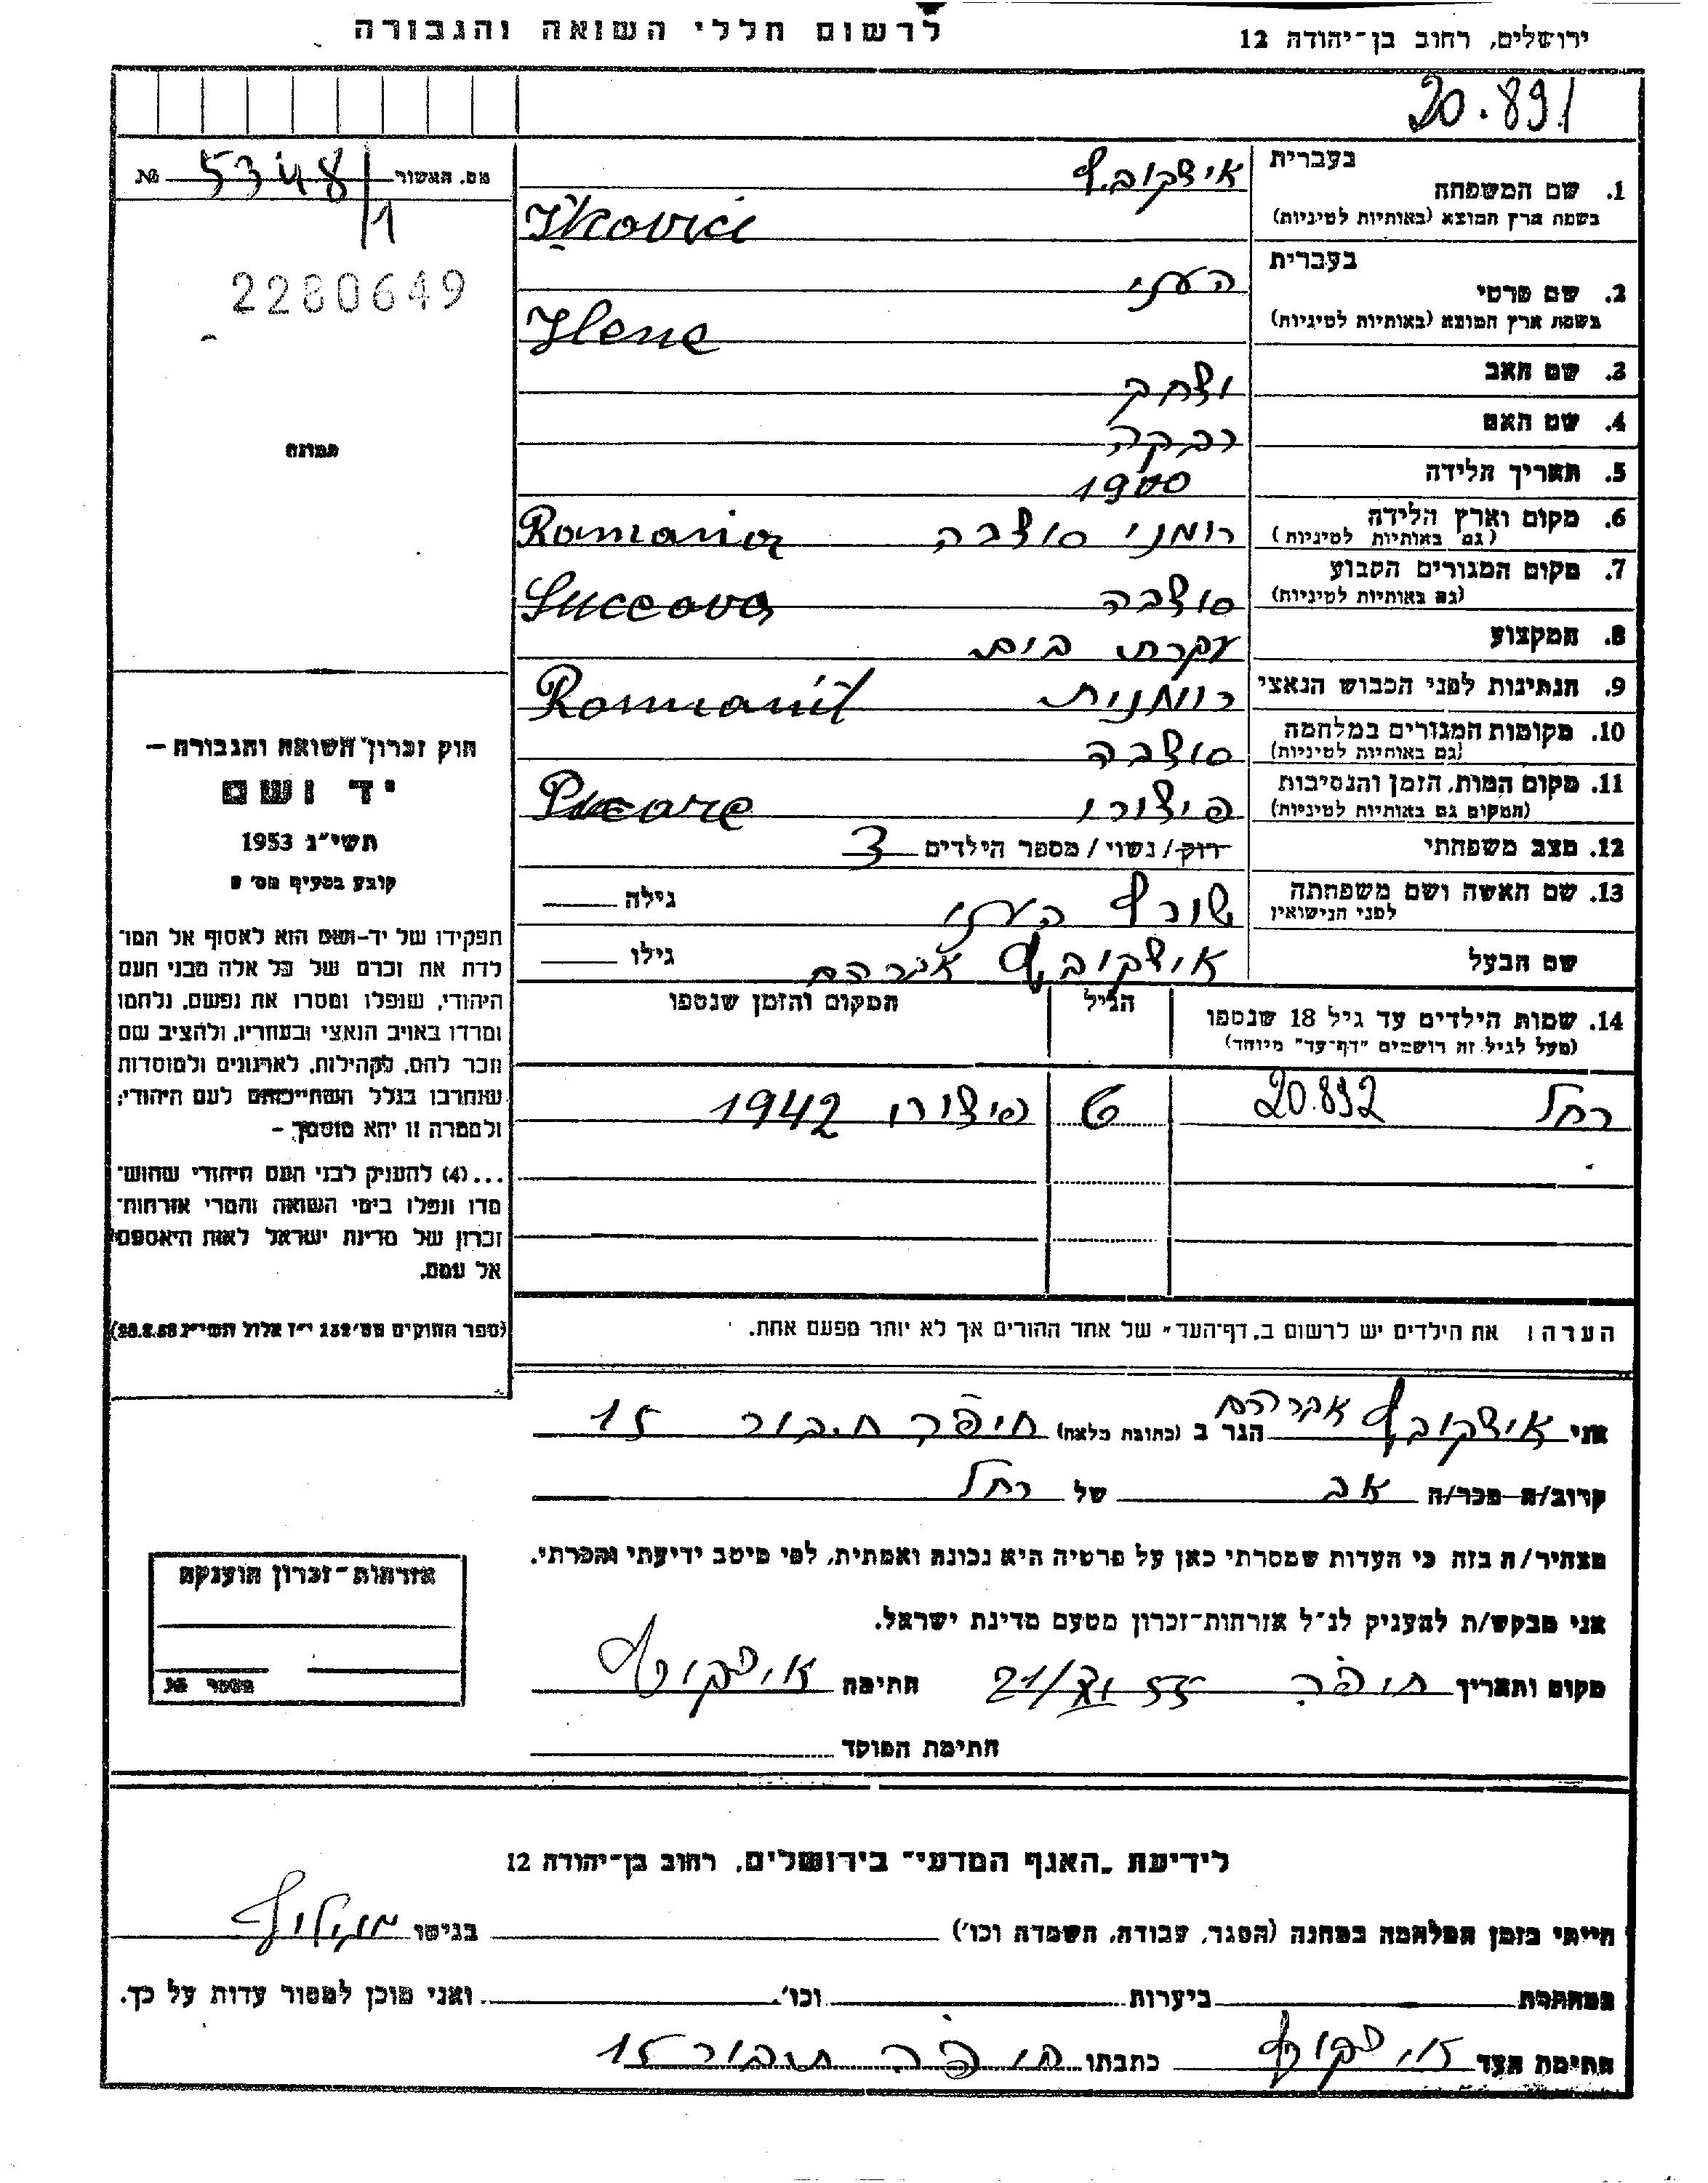 לרשום חללי השואה והגבורה
ירושלים, רחוב בן־יהודה 12
20.891
בעברית
איצקוביץ
1. שם המשפחה
בשפת ארץ המוצא (באותיות לטיניות)
Itkovici
מס. האשור 5348/1 №
2280649
תמונה
בעברית
העני
2. שם פרטי
בשפת ארץ המוצא (באותיות לטיניות)
Hene
3. שם האב
יצחק
4. שם האם
רבקה
5. תאריך הלידה
1900
6. מקום וארץ הלידה
(גם באותיות לטיניות)
רומני סוצבה Romania
7. מקום המגורים הקבוע
(גם באותיות לטיניות)
סוצבה Suceava
8. המקצוע
עקרת בית
9. הנתינות לפני הכבוש הנאצי
רומנית Romanit
10. מקומות המגורים במלחמה
(גם באותיות לטיניות)
סוצבה
11. מקום המות, הזמן והנסיבות
(המקום גם באותיות לטיניות)
פיצורו
12. מצב משפחתי
רוק / נשוי / מספר הילדים 3
13. שם האשה ושם משפחתה
לפני הנישואין
שורף העני גילה
שם הבעל
איצקוביץ אברהם גילו
14. שמות הילדים עד גיל 18 שנספו
(מעל לגיל זה רושמים "דף־עד" מיוחד)
הגיל
המקום והזמן שנספו
רחל 20.892 6 פיצורו 1942
הערה: את הילדים יש לרשום ב„דף־העד" של אחד ההורים אך לא יותר מפעם אחת.
חוק זכרון השואה והגבורה –
יד ושם
תשי"ג 1953
קובע בסעיף מס' 2
תפקידו של יד-ושם הוא לאסוף אל המו־
לדת את זכרם של כל אלה מבני העם
היהודי, שנפלו ומסרו את נפשם, נלחמו
ומרדו באויב הנאצי ובעוזריו, ולהציב שם
וזכר להם, לקהילות, לארגונים ולמוסדות
שנחרבו בגלל השתייכותם לעם היהודי;
ולמטרה זו יהא מוסמך –
...(4) להעניק לבני העם היהודי שהוש־
מדו ונפלו בימי השואה והמרי אזרחות־
זכרון של מדינת ישראל לאות היאספם
אל עמם.
(ספר החוקים מס' 132 י"ז אלול תשי"ג 28.8.53)
אני איצקוביץ אברהם הגר ב (כתובת מלאה) חיפה חיבור 15
קרוב/ה מכר/ה אב של רחל
מצהיר/ה בזה כי העדות שמסרתי כאן על פרטיה היא נכונה ואמתית, לפי מיטב ידיעתי והכרתי.
אני מבקש/ת להעניק לנ"ל אזרחות־זכרון מטעם מדינת ישראל.
מקום ותאריך חיפה 21/XI 55 חתימה איצקוביץ
חתימת המוסד
אזרחות־זכרון הוענקה
מספר №
לידיעת „האגף המדעי" בירושלים, רחוב בן־יהודה 12
הייתי בזמן המלחמה במחנה (הסגר, עבודה, השמדה וכו') בגיטו מוגילוף
במחתרת ביערות וכו'. ואני מוכן למסור עדות על כך.
חתימת העד איצקוביץ כתבתו חיפה חיבור 15